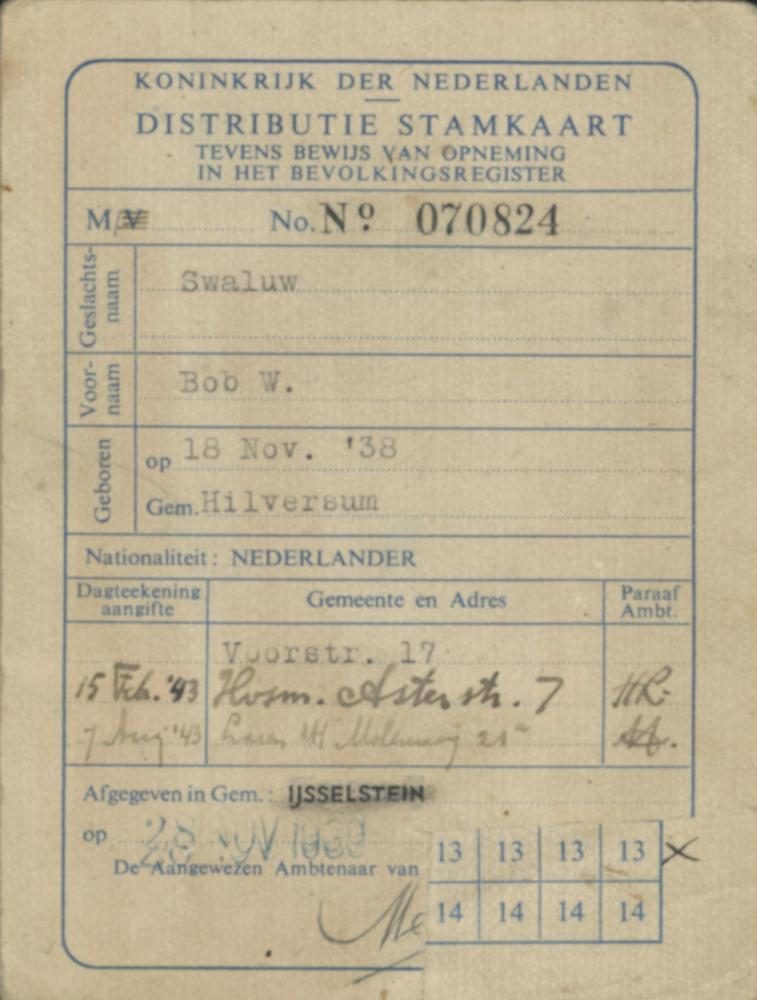 KONINKRIJK DER NEDERLANDEN
DISTRIBUTIE STAMKAART
TEVENS BEWIJS VAN OPNEMING
IN HET BEVOLKINGSREGISTER
M/V No. Nº 070824
Geslachts-
naam
Swaluw
Voor-
naam
Bob W.
Geboren
op 18 Nov. '38
Gem. Hilversum
Nationaliteit: NEDERLANDER
Dagteekening
aangifte
Gemeente en Adres
Paraaf
Ambt.
Voorstr. 17
15 Feb. '43 Asterstr. 7 HR.
7 Aug '43 Laren
Afgegeven in Gem.: IJSSELSTEIN
op 28 NOV 1939
De Aangewezen Ambtenaar van
13 13 13 13 X
14 14 14 14